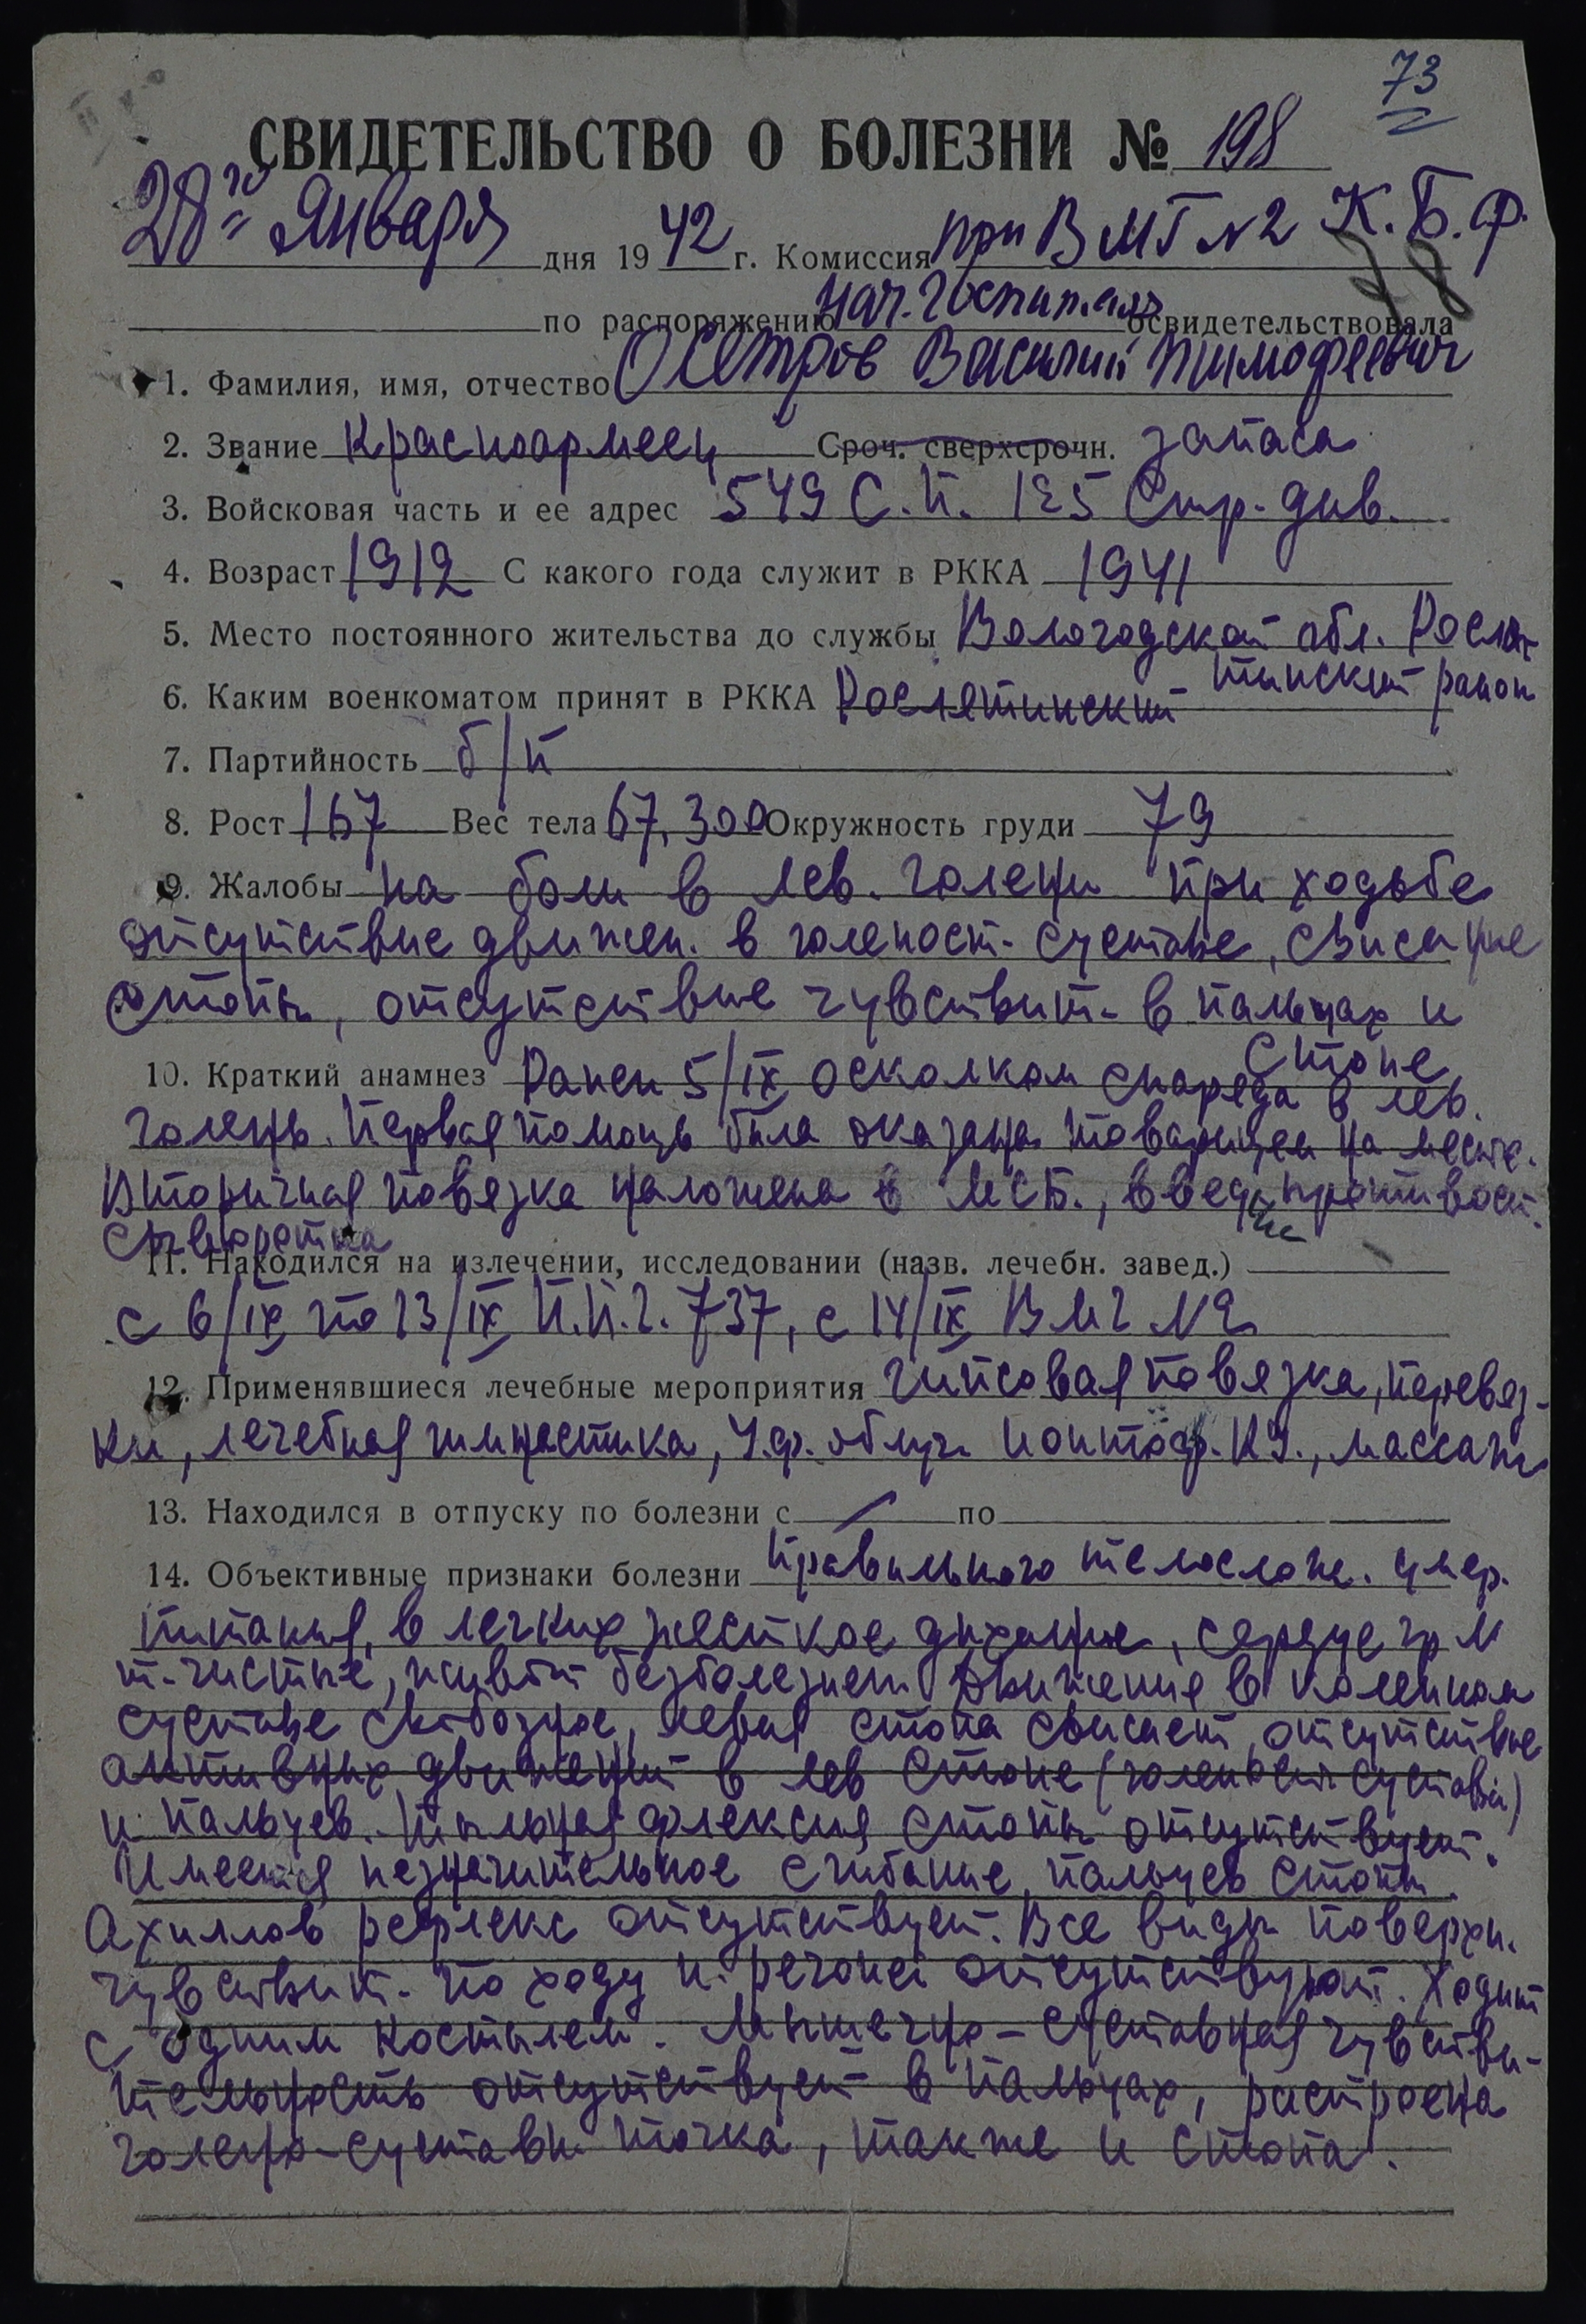 73
СВИДЕТЕЛЬСТВО О БОЛЕЗНИ № 198
28го Января дня 1942 г. Комиссия при ВМГ N2 К.Б.Ф.
78
по распоряжению нач. госпиталя освидетельствовала
1. Фамилия, имя, отчество Осетров Василий Тимофеевич
2. Звание Красноармеец Сроч. сверхсрочн. запаса
3. Войсковая часть и ее адрес 549 С.П. 125 Стр. див.
4. Возраст 1912 С какого года служит в РККА 1941
5. Место постоянного жительства до службы Вологодской обл. Росля-
тинский район
6. Каким военкоматом принят в РККА Рослятинский
7. Партийность б/п
8. Рост 167 Вес тела 67,300 Окружность груди 79
9. Жалобы на боли в лев. голени при ходьбе
отсутствие движен. в голеност. суставе, свисание
стопы, отсутствие чувствит. в пальцах и
стопе
10. Краткий анамнез Ранен 5/IX осколком снаряда в лев.
голень. Первая помощь была оказана товарищем на месте.
Вторичная повязка наложена в МСБ., введена противост.
сыворотка
11. Находился на излечении, исследовании (назв. лечебн. завед.)
с 6/IX по 13/IX П.П.Г. 737, с 14/IX ВМГ N2
12. Применявшиеся лечебные мероприятия Гипсовая повязка, перевяз-
ки, лечебная гимнастика, У.ф. облуч. Ионтоф. К.J., массаж
13. Находился в отпуску по болезни с — по
14. Объективные признаки болезни правильного телослож. умер.
питания, в легких жесткое дыхание, сердце гр М
т-чистые, живот безболезнен. Движения в коленном
суставе свободное, левая стопа свисает, отсутствие
активных движений в лев стопе (голеност. сустава)
и пальцев. Тыльная флексия стопы отсутствует.
Имеется незначительное сгибание пальцев стопы.
Ахиллов рефлекс отсутствует. Все виды поверхн.
чувствит. по ходу n. peronei отсутствуют. Ходит
с одним костылем. Мышечно-суставная чувстви-
тельность отсутствует в пальцах, растроена
голено-суставн. точка, также и стопа.